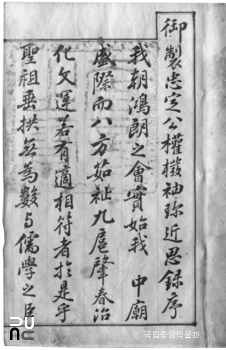 御製忠定公權撥袖珍近思錄序
我朝鴻朗之會實始我 中廟
盛際而八方茹祉九扈肇春治
化文運若有適相符者於是乎
聖祖垂拱無為數与儒學之臣
국립중앙박물관